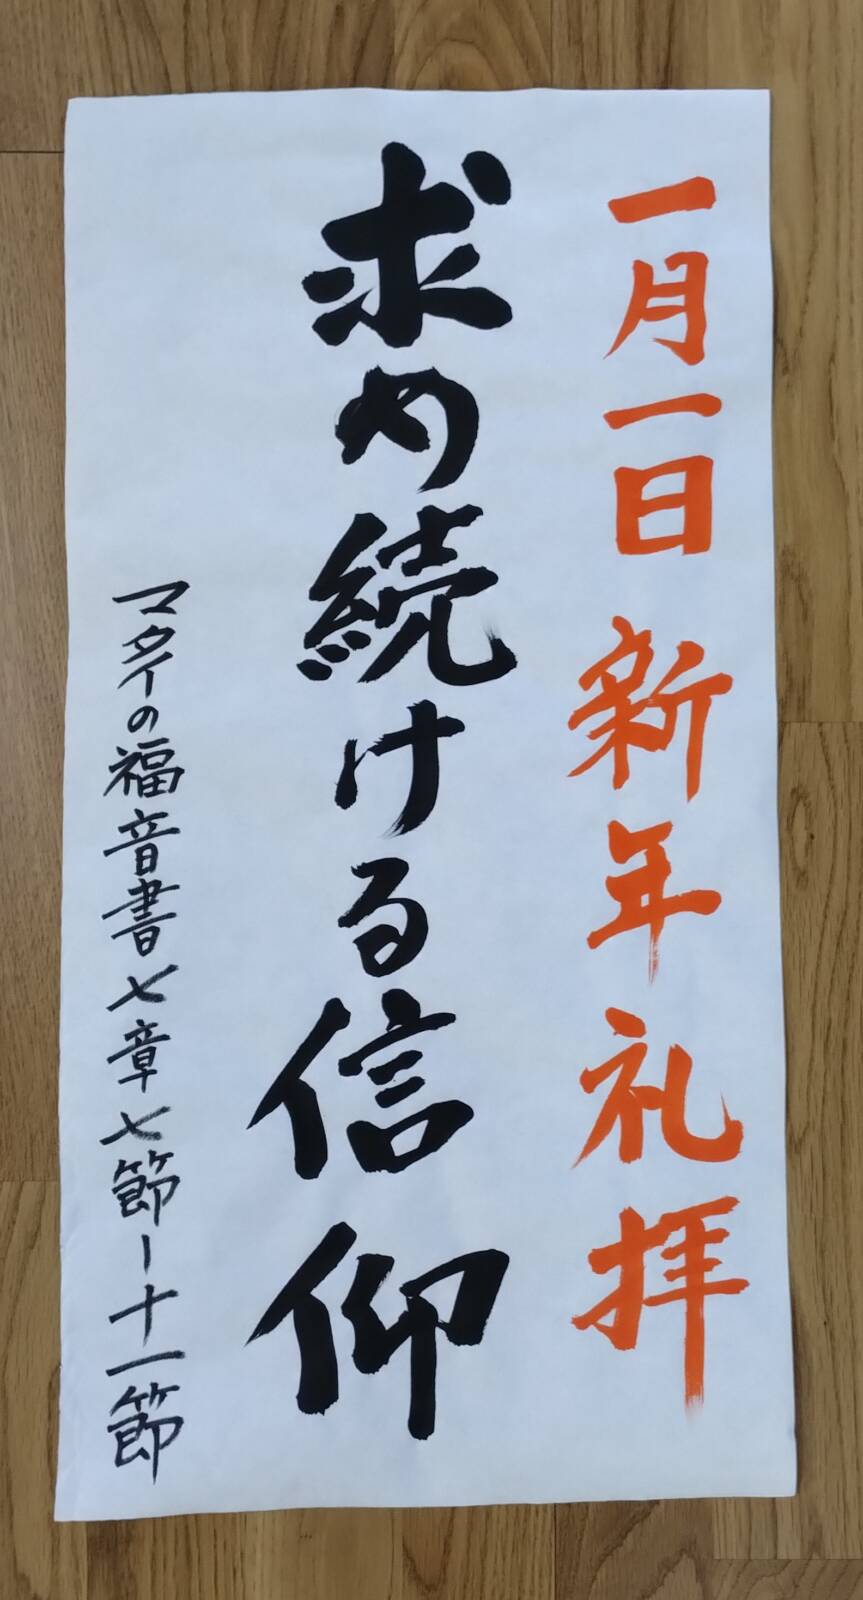 一月一日 新年礼拝
求め続ける信仰
マタイの福音書七章七節ー十一節